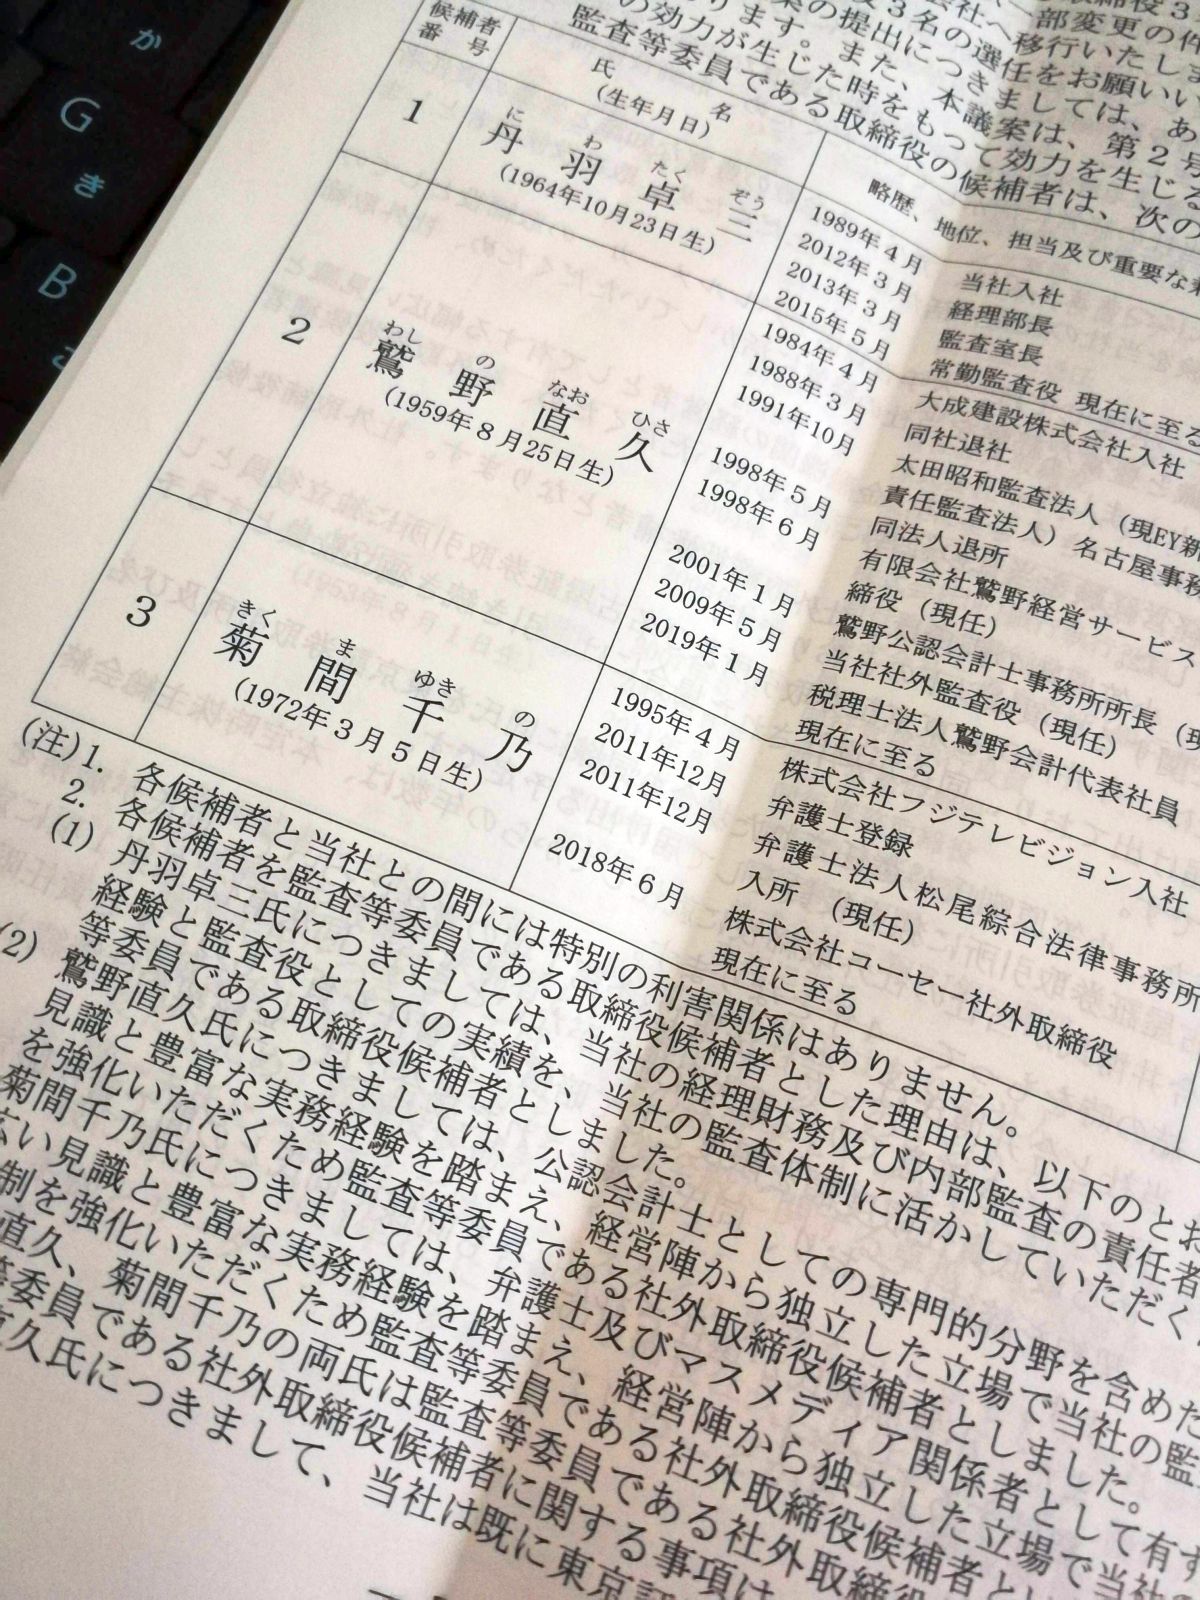 か
G
き
B
取締役3
部変更の件
会社へ移行いたしま
3名の選任をお願いい
案の提出につきましては、あ
ます。また、本議案は、第2号
の効力が生じた時をもって効力を生じる
監査等委員である取締役の候補者は、次の
候補者
番号
氏名
(生年月日)
略歴、地位、担当及び重要な
1
に わ たく ぞう
丹羽卓三
(1964年10月23日生)
1989年4月 当社入社
2012年3月 経理部長
2013年3月 監査室長
2015年5月 常勤監査役 現在に至る
2
わし の なお ひさ
鷲野直久
(1959年8月25日生)
1984年4月 大成建設株式会社入社
1988年3月 同社退社
1991年10月 太田昭和監査法人(現EY新
責任監査法人)名古屋事務
1998年5月 同法人退所
1998年6月 有限会社鷲野経営サービス
締役(現任)
2001年1月 鷲野公認会計士事務所所長(現
2009年5月 当社社外監査役(現任)
2019年1月 税理士法人鷲野会計代表社員
現在に至る
3
きく ま ゆき の
菊間千乃
(1972年3月5日生)
1995年4月 株式会社フジテレビジョン入社
2011年12月 弁護士登録
2011年12月 弁護士法人松尾綜合法律事務所
入所(現任)
2018年6月 株式会社コーセー社外取締役
現在に至る
(注)1. 各候補者と当社との間には特別の利害関係はありません。
2. 各候補者を監査等委員である取締役候補者とした理由は、以下のとお
(1) 丹羽卓三氏につきましては、当社の経理財務及び内部監査の責任者
経験と監査役としての実績を、当社の監査体制に活かしていただく
等委員である取締役候補者としました。
(2) 鷲野直久氏につきましては、公認会計士としての専門的分野を含めた
見識と豊富な実務経験を踏まえ、経営陣から独立した立場で当社の監
を強化いただくため監査等委員である社外取締役候補者としました。
菊間千乃氏につきましては、弁護士及びマスメディア関係者として有す
広い見識と豊富な実務経験を踏まえ、経営陣から独立した立場で当社の
制を強化いただくため監査等委員である社外取締役候補者とし
直久、菊間千乃の両氏は監査等委員である社外取締役
等委員である社外取締役候補者に関する事項は
直久氏につきまして、当社は既に東京証